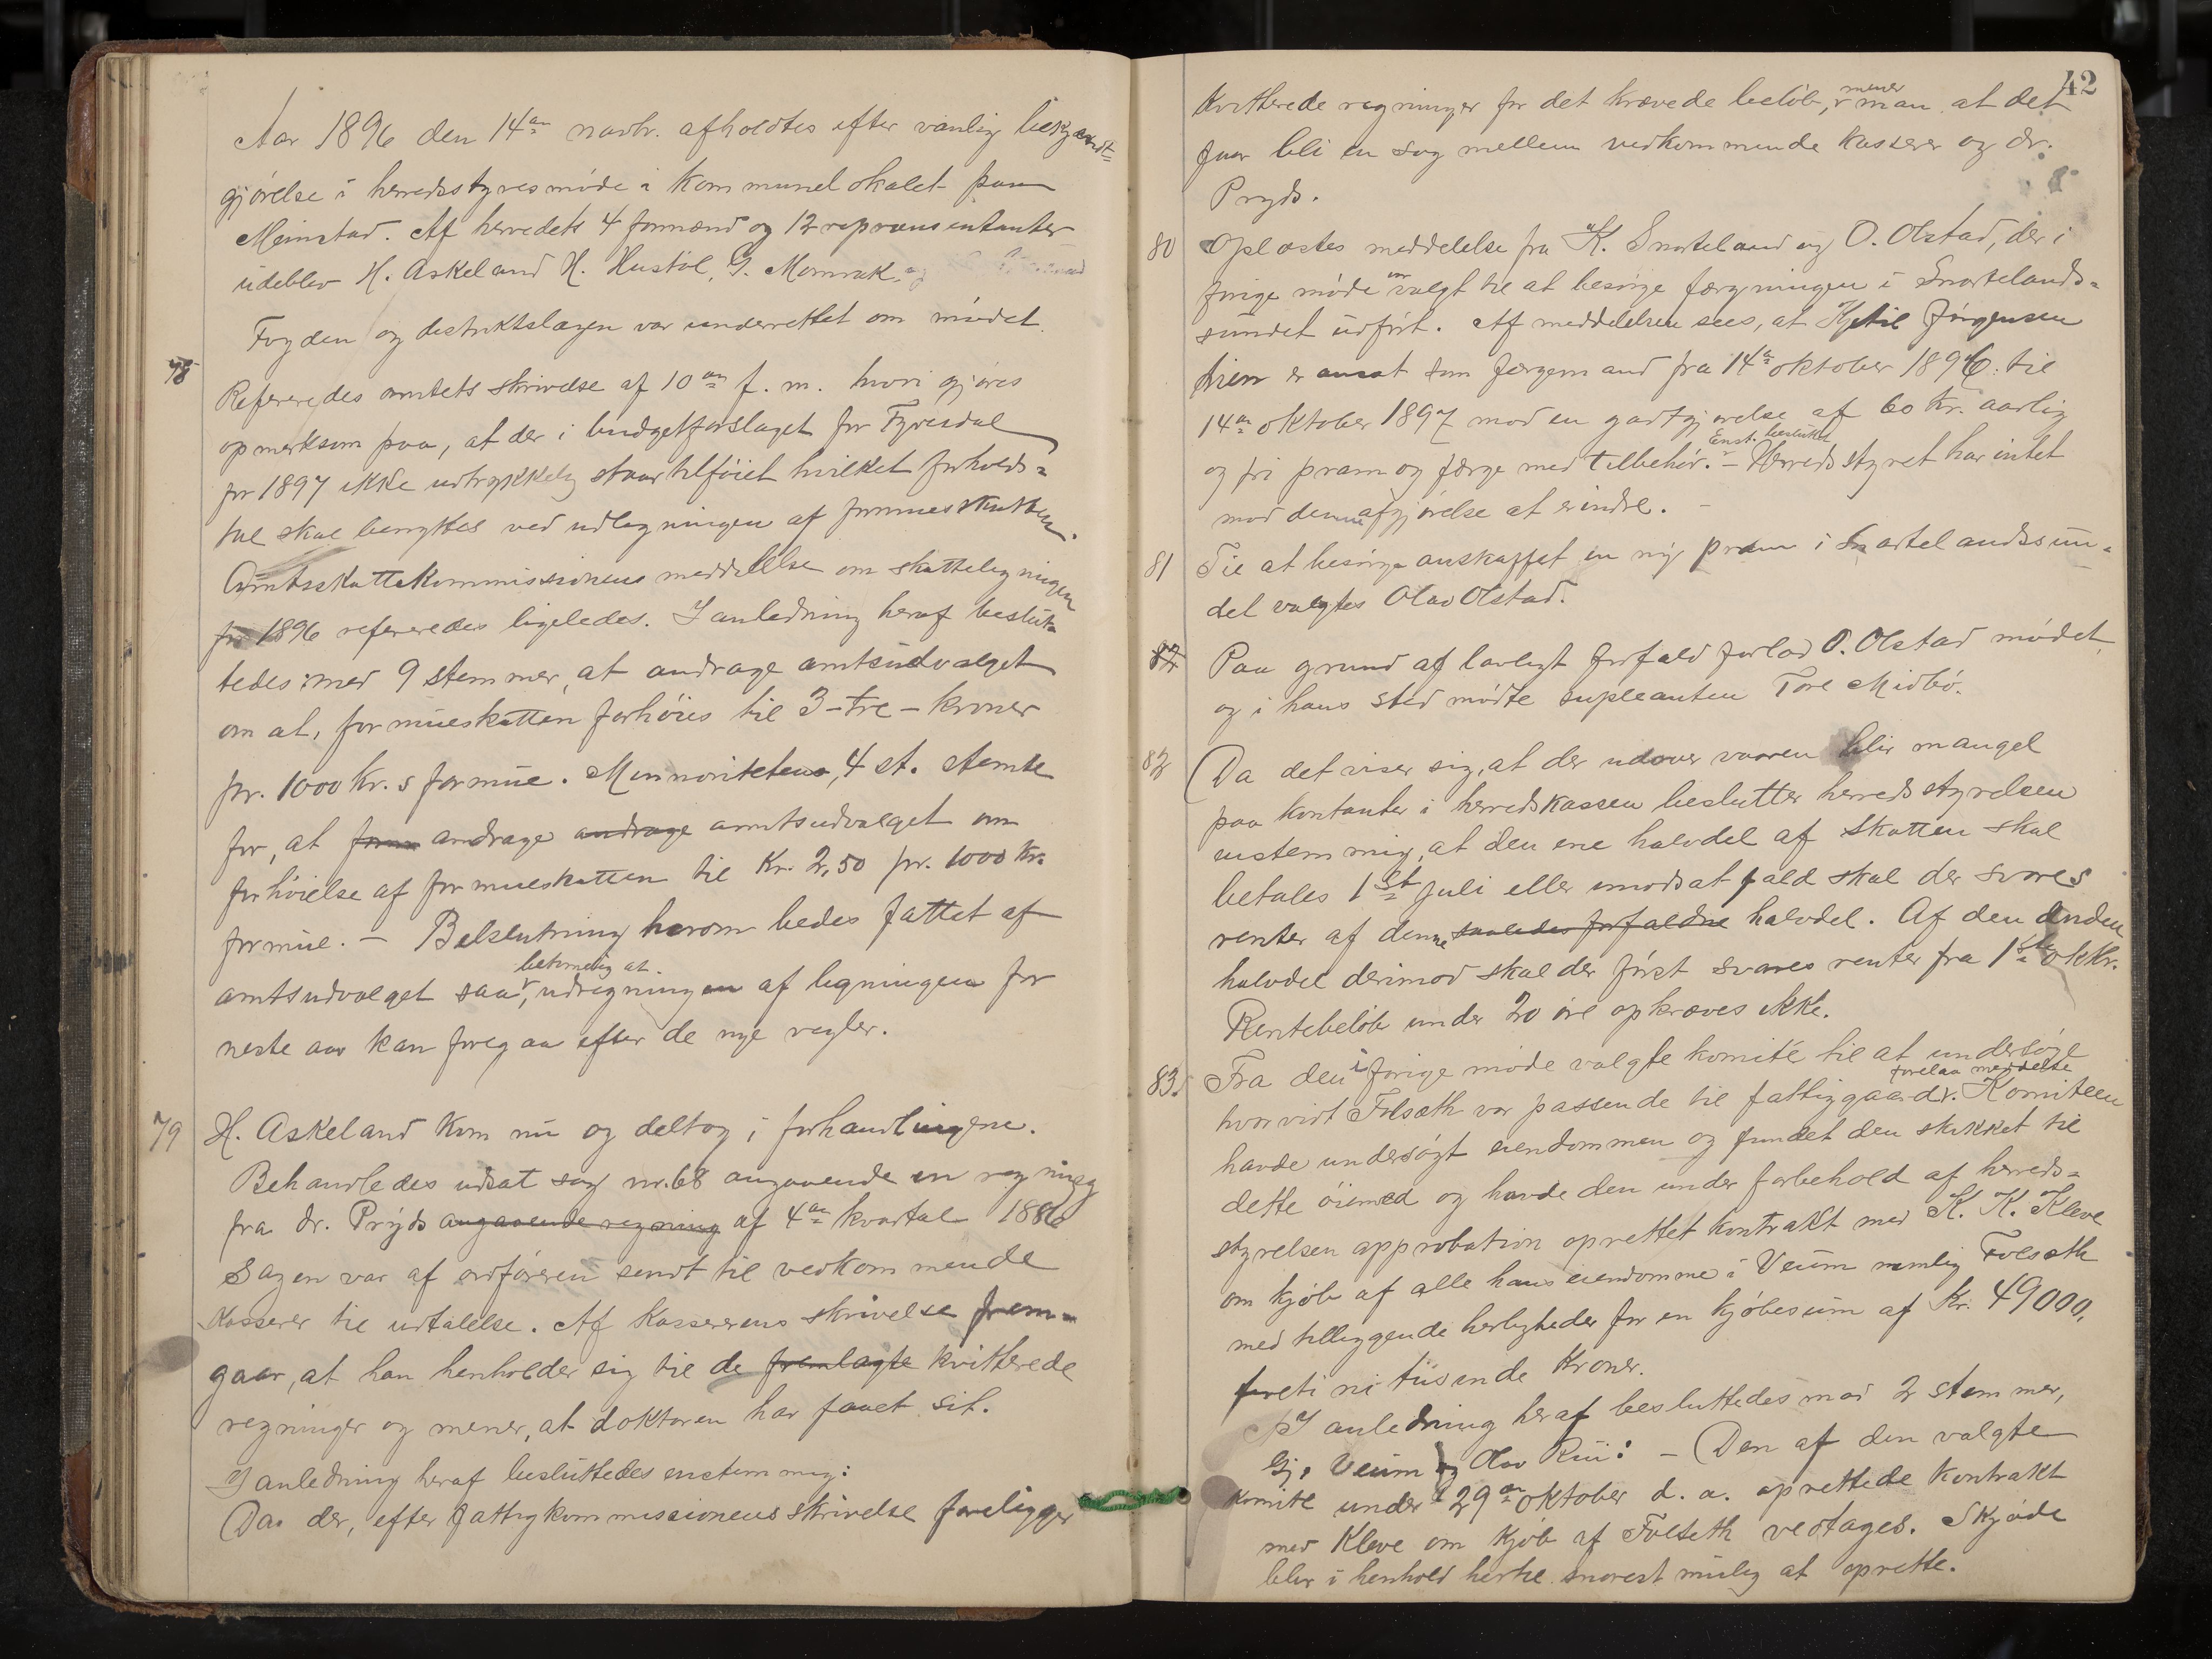 Aar 1896 den 14de novbr. afholdtes efter vanlig bekjendt-
gjørelse i herredsstyresmøde i kommunelokalet paa
Meinstad. Af herredets 4 formænd og 12 repræsentanter
udeblev H. Askeland H. Hustøl, G. Momrak og
Fogden og distriktslægen var underrettet om mødet.
78
Refereredes amtets skrivelse af 10de f. m. hvori gjøres
opmerksom paa, at der i budgetforslaget for Fyresdal
for 1897 ikke udtrykkelig staar tilføiet hvilket forholds-
tal skal benyttes ved udlegningen af formuesskatten.
Amtsskattekommissionens meddelelse om skattelegningen
for 1896 refereredes ligeledes. I anledning heraf beslut-
tedes med 9 stemmer, at andrage amtsudvalget
om at, formueskatten forhøies til 3 - tre - kroner
pr. 1000 kr.s formue. Minnoriteten, 4 st. stemte
for, at form andrage andrage amtsudvalget om
forhøielse af formueskatten til Kr. 2,50 pr. 1000 kr.
formue. - Belsutning herom bedes fattet af
betimelig at
amtsudvalget saa, udregningen af ligningen for
neste aar kan foregaa efter de nye regler.
79 H. Askeland kom nu og deltog i forhandlingene.
Behandledes udsat sag nr. 68 angaaende en regning
fra dr. Pryds angaaende regning af 4de kvartal 1886
Sagen var af ordføreren sendt til vedkommende
Kasserer til udtalelse. Af Kassererens skrivelse frem-
gaar, at han henholder sig til de fremlagte kvitterede
regninger og mener, at doktoren har faaet sit.
I anledning heraf besluttedes enstemmig:
Da der, efter fattigkommissionens skrivelse foreligger
42
mener
kvitterede regninger for det krævede beløb, man at det
faar bli en sag mellem vedkommende kasserer og dr.
Pryds.
80 Oplæstes meddelelse fra K. Snarteland og O. Olstad, der i
var
forige møde valgt til at besørge færgningen i Snartelands-
sundet udført. Af meddelelsen sees, at Kjetil Jørgensen
er ansat som færgemand fra 14de oktober 1896 til
14de oktober 1897 mod en godtgjørelse af 60 kr. aarlig
Enst. besluttet
og fri pram og færge med tilbehør. - Herredsstyret har intet
mod denne afgjørelse at erindre. -
81 Til at besørge anskaffet en ny pram i Snartelandssun-
det valgtes Olav Olstad.
82 Paa grund af lovligt forfald forlod O. Olstad mødet
og i hans sted mødte supleanten Tore Midbø.
82 Da det viser sig, at der udover vaaren blir mangel
paa kontanter i herredskassen beslutter herredsstyrelsen
enstemmig, at den ene halvdel af skatten skal
betales 1st juli eller imodsat fald skal der svares
renter af denne saaledes forfaldne halvdel. Af den anden
halvdel derimod skal der først svares renter fra 1ste oktbr.
Rentebeløb under 20 øre opkræves ikke.
83. Fra den i forige møde valgte komité til at undersøge
forelaa meddelse
hvorvidt Folsæth var passende til fattiggaard. Komiteen
havde undersøgt eiendommen og fundet den skikket til
dette øiemed og havde den under forbehold af herreds-
styrelsen approbation oprettet kontrakt med K. K. Kleve
om kjøb af alle hans eiendomme i Veum nemlig Folsæth
med tilliggende herligheder for en kjøbesum af Kr. 49000,
forti ni tusende kroner.
I anledning heraf besluttedes mod 2 stemmer,
Gj. Veum og Olav Rui: - Den af den valgte
komite under 29de oktober d. a. oprettede kontrakt
med Kleve om kjøb af Folseth vedtages. Skjøde
blir i henhold hertil snarest mulig at oprette.